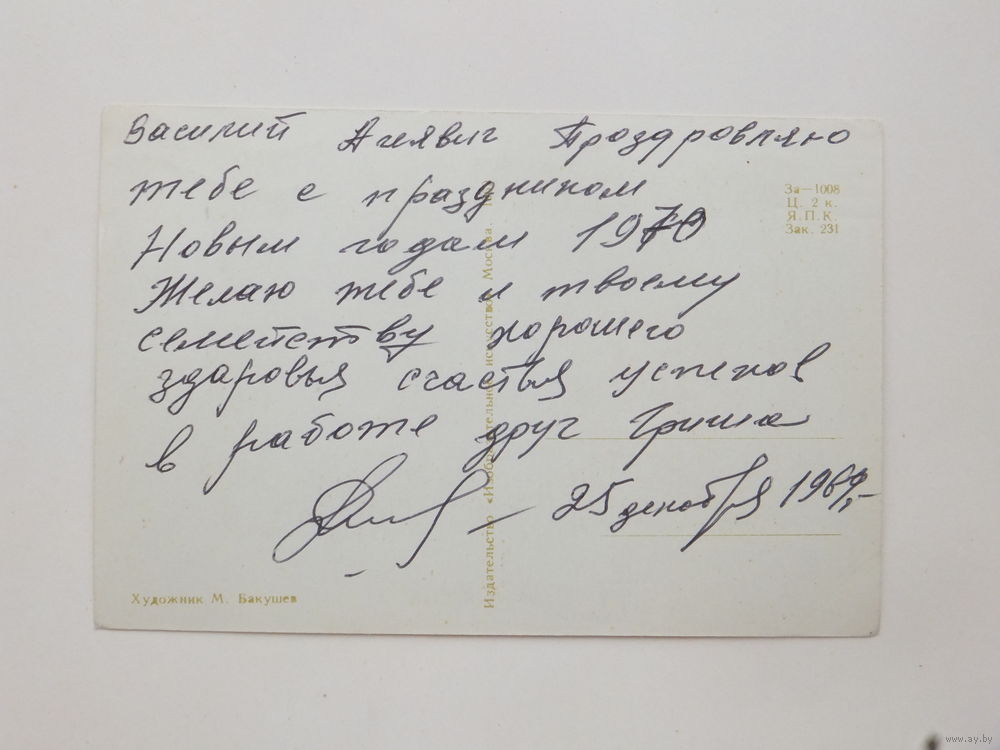 Василий Агеявич Проздровляю
тебе с праздником
Новым годам 1970
Желаю тебе и твоему
семейству хорошего
здаровья счастья успехов
в работе друг Гриша
25 декабря 1969г.
За—1008
Ц. 2 к.
Я.П.К.
Зак. 231
Издательство «Изобразительное искусство». Москва.
Художник М. Бакушев
www.ay.by